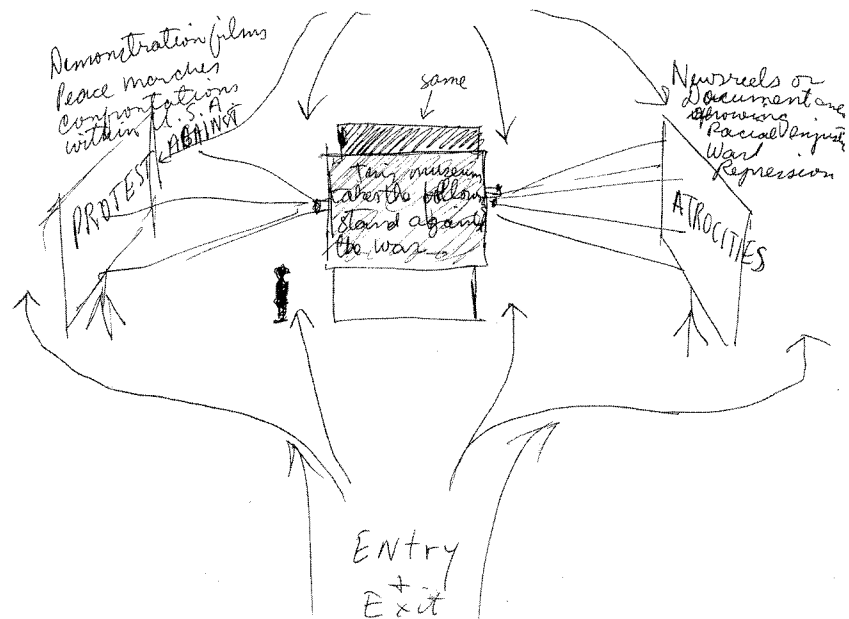 Demonstration films
Peace marches
confrontations
within U.S.A
PROTEST AGAINST
same
This museum
takes the follow
stand against
the war
Newsreels or
Documentaries
showing
Racial Injust
War
Repression
ATROCITIES
Entry
+
Exit